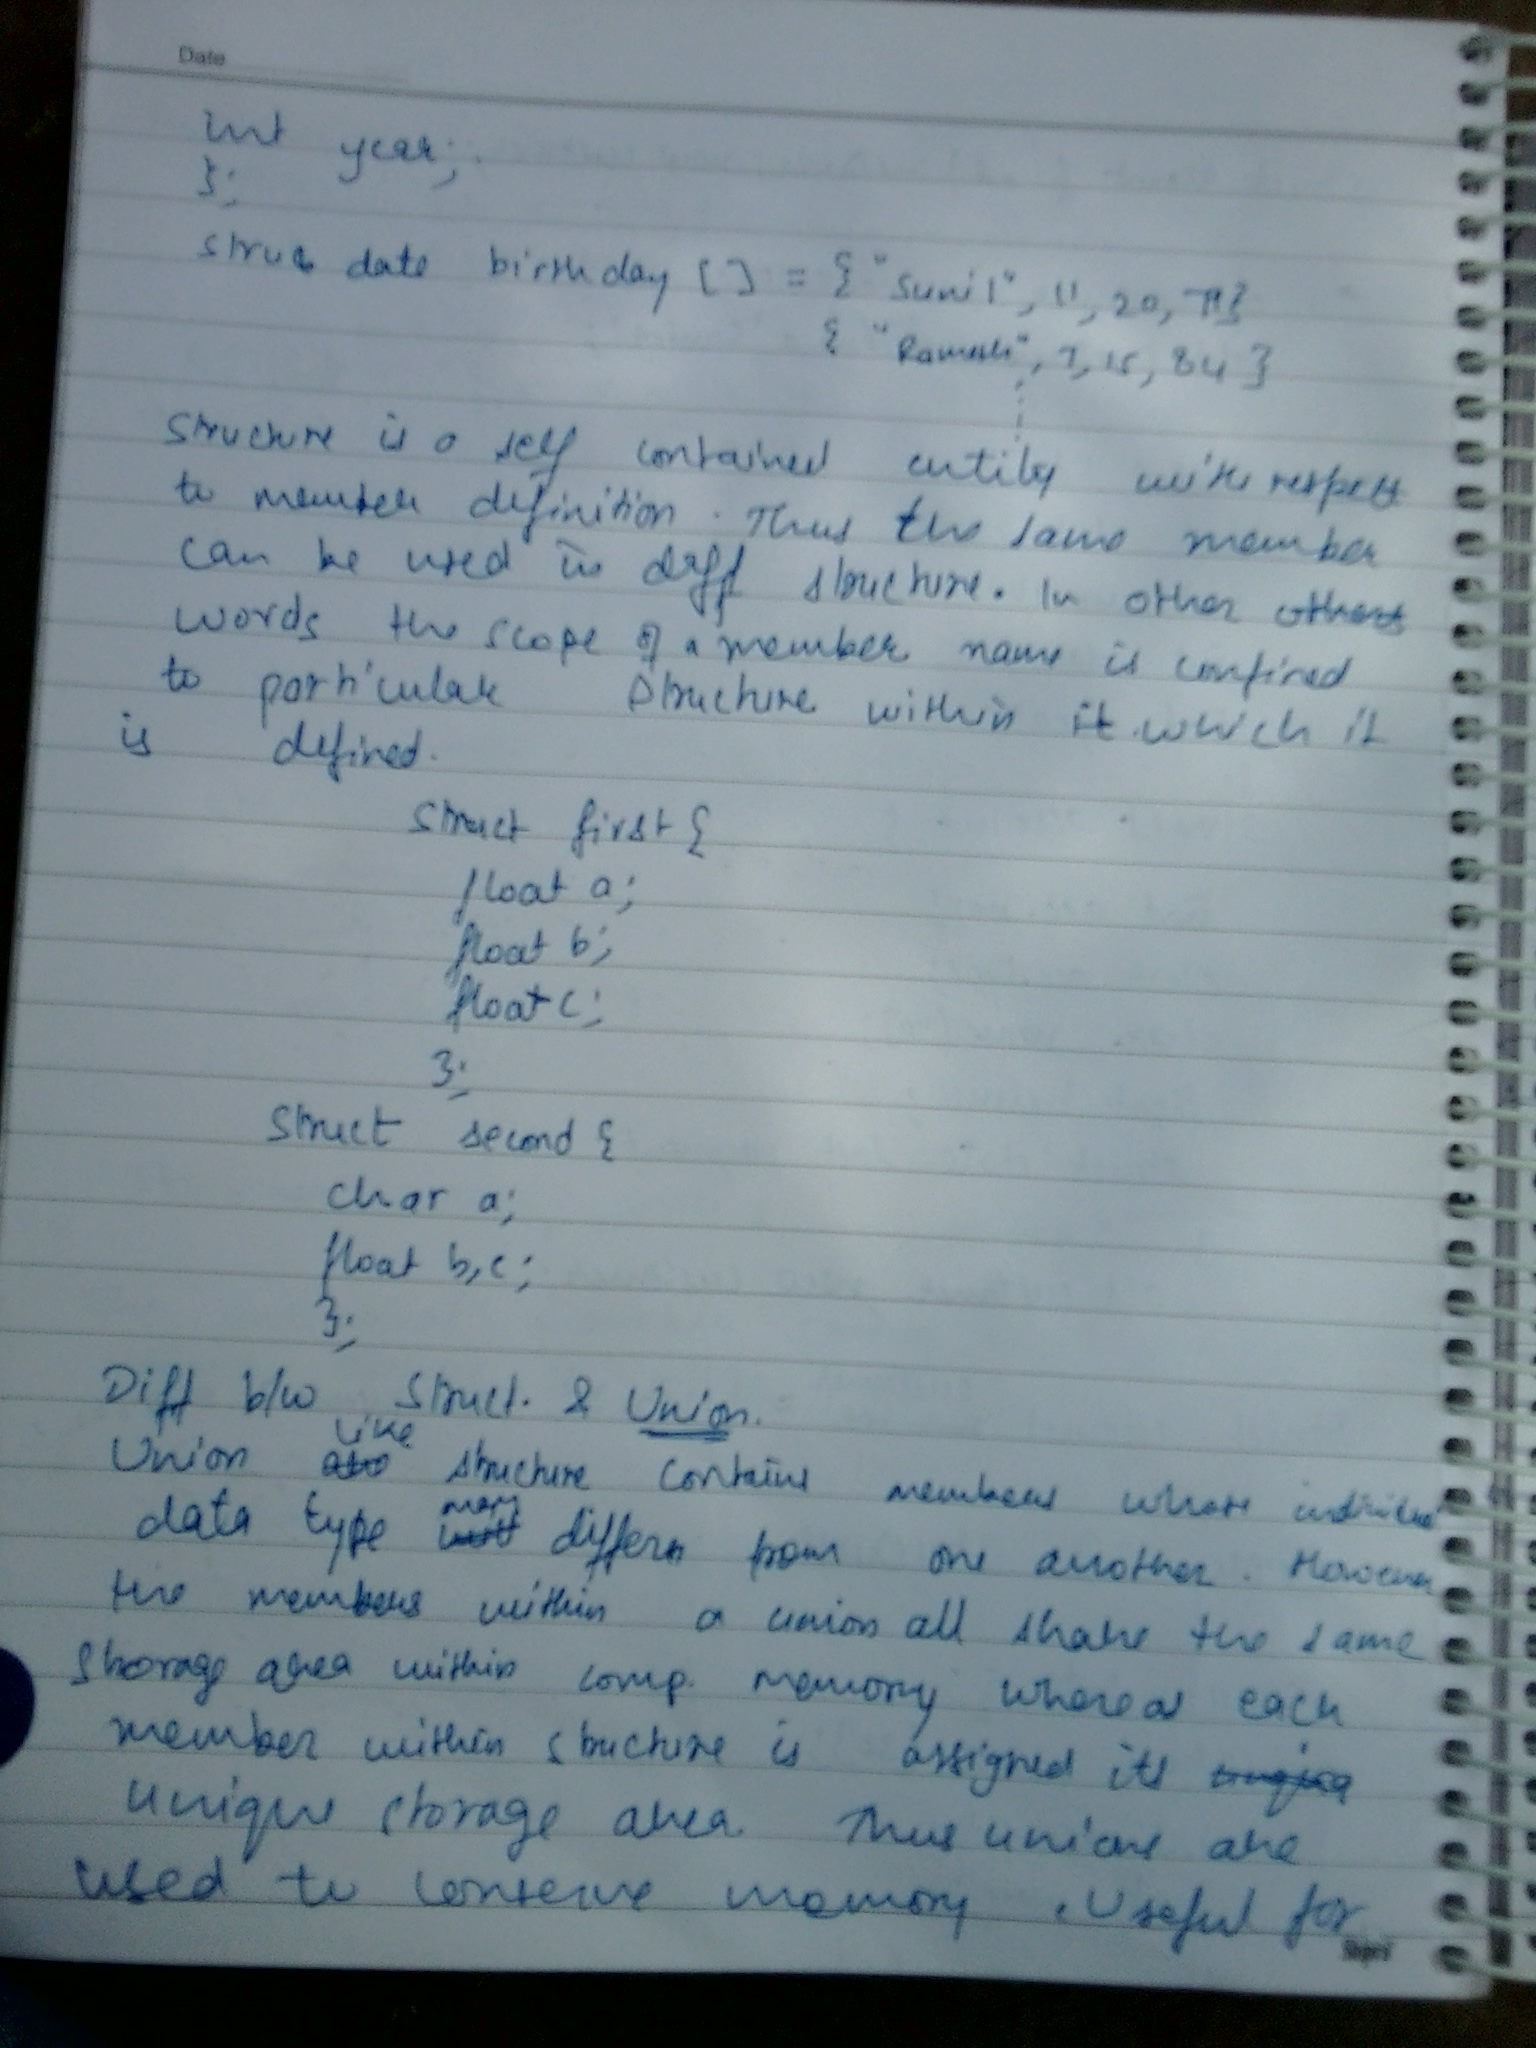 Date
int year;
};
struc date birthday [ ] = { "Sunil", 11, 20, 79}
{ "Ramesh", 7, 15, 84 }
Structure is a self contained entity with respect
to member definition. Thus the same member
can be used in diff structure. In other others
words the scope of a member name is confined
to particular structure within it which it
is defined.
struct first {
float a;
float b;
float c;
};
struct second {
char a;
float b,c;
};
Diff b/w struct. & Union.
like
Union also structure contains members whose individual
may
data type differ from one another. However
the members within a union all share the same
storage area within comp. memory whereas each
member within structure is assigned its
unique storage area. Thus unions are
used to conserve memory. Useful for